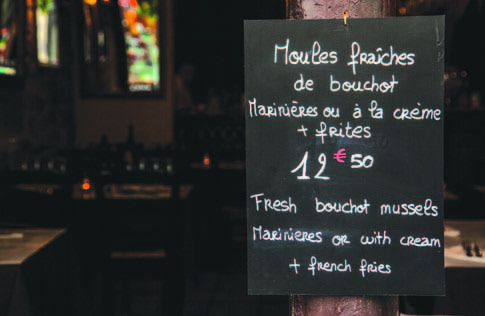 Moules fraîches
de bouchot
Marinières ou à la crème
+ frites
12 € 50
Fresh bouchot mussels
Marinieres or with cream
+ french fries